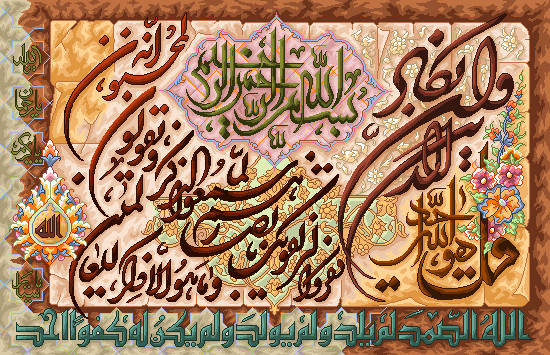 بسم الله الرحمن الرحيم
وإن يكاد الذين كفروا ليزلقونك بأبصارهم لما سمعوا الذكر ويقولون إنه لمجنون
وما هو إلا ذكر للعالمين
الله
قل هو الله أحد
الله الصمد لم يلد ولم يولد ولم يكن له كفوًا احد